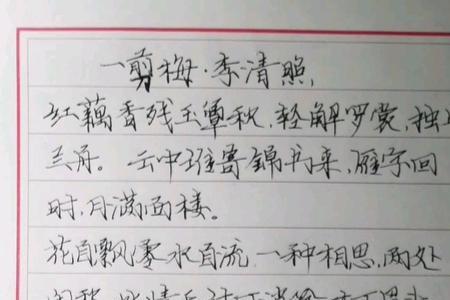 一剪梅·李清照,
红藕香残玉簟秋,轻解罗裳,独
兰舟。云中谁寄锦书来,雁字回
时,月满西楼。
花自飘零水自流,一种相思,两处